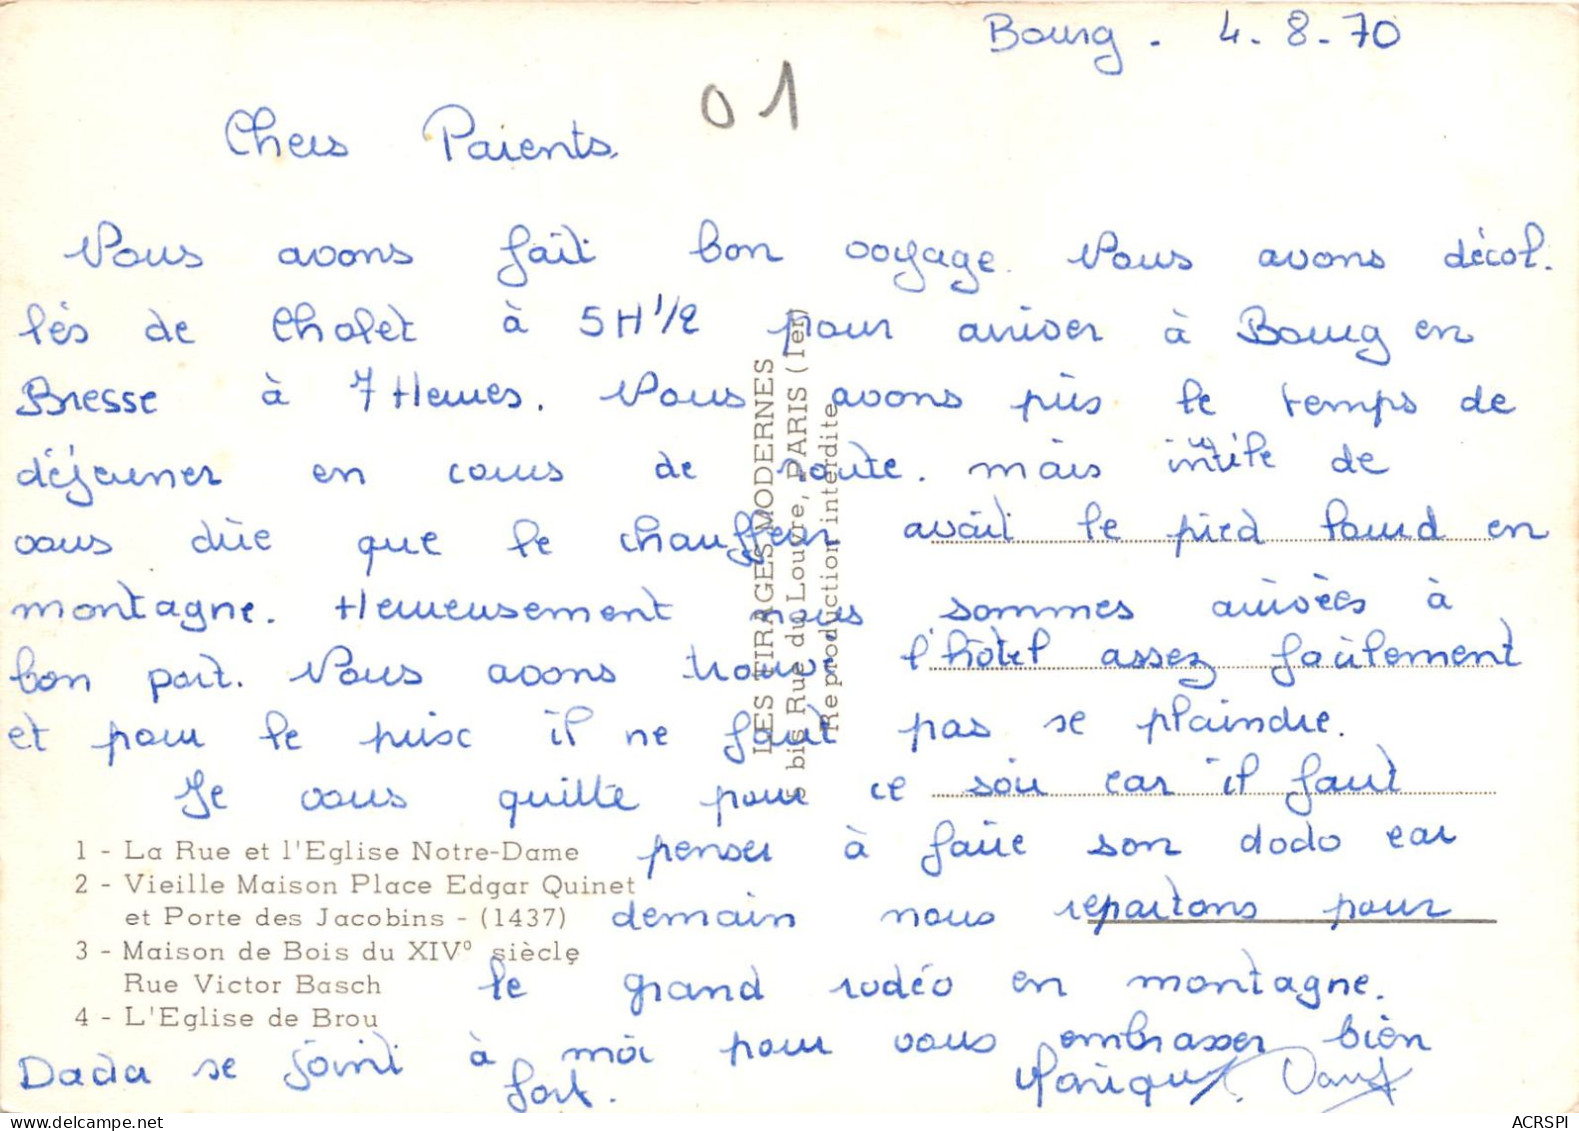 Bourg. 4-8-70
01
Chers Parents.
Nous avons fait bon voyage. Nous avons décol.
lés de Cholet à 5H 1/2 pour arriver à Bourg en
Bresse à 7 Heures. Nous avons pris le temps de
déjeuner en cours de route. mais inutile de
vous dire que le chauffeur avait le pied lourd en
montagne. Heureusement nous sommes arrivées à
bon port. Nous avons trouvé l'hôtel assez facilement
et pour le prix il ne faut pas se plaindre.
Je vous quitte pour ce soir car il faut
penser à faire son dodo car
demain nous repartons pour
le grand rodéo en montagne.
Dada se joint à moi pour vous embrasser bien
fort.
Monique
LES TIRAGES MODERNES
5 bis Rue du Louvre, PARIS (1er)
Reproduction interdite
1 - La Rue et l'Eglise Notre-Dame
2 - Vieille Maison Place Edgar Quinet
et Porte des Jacobins - (1437)
3 - Maison de Bois du XIV° siècle
Rue Victor Basch
4 - L'Eglise de Brou
delcampe.net
ACRSPI